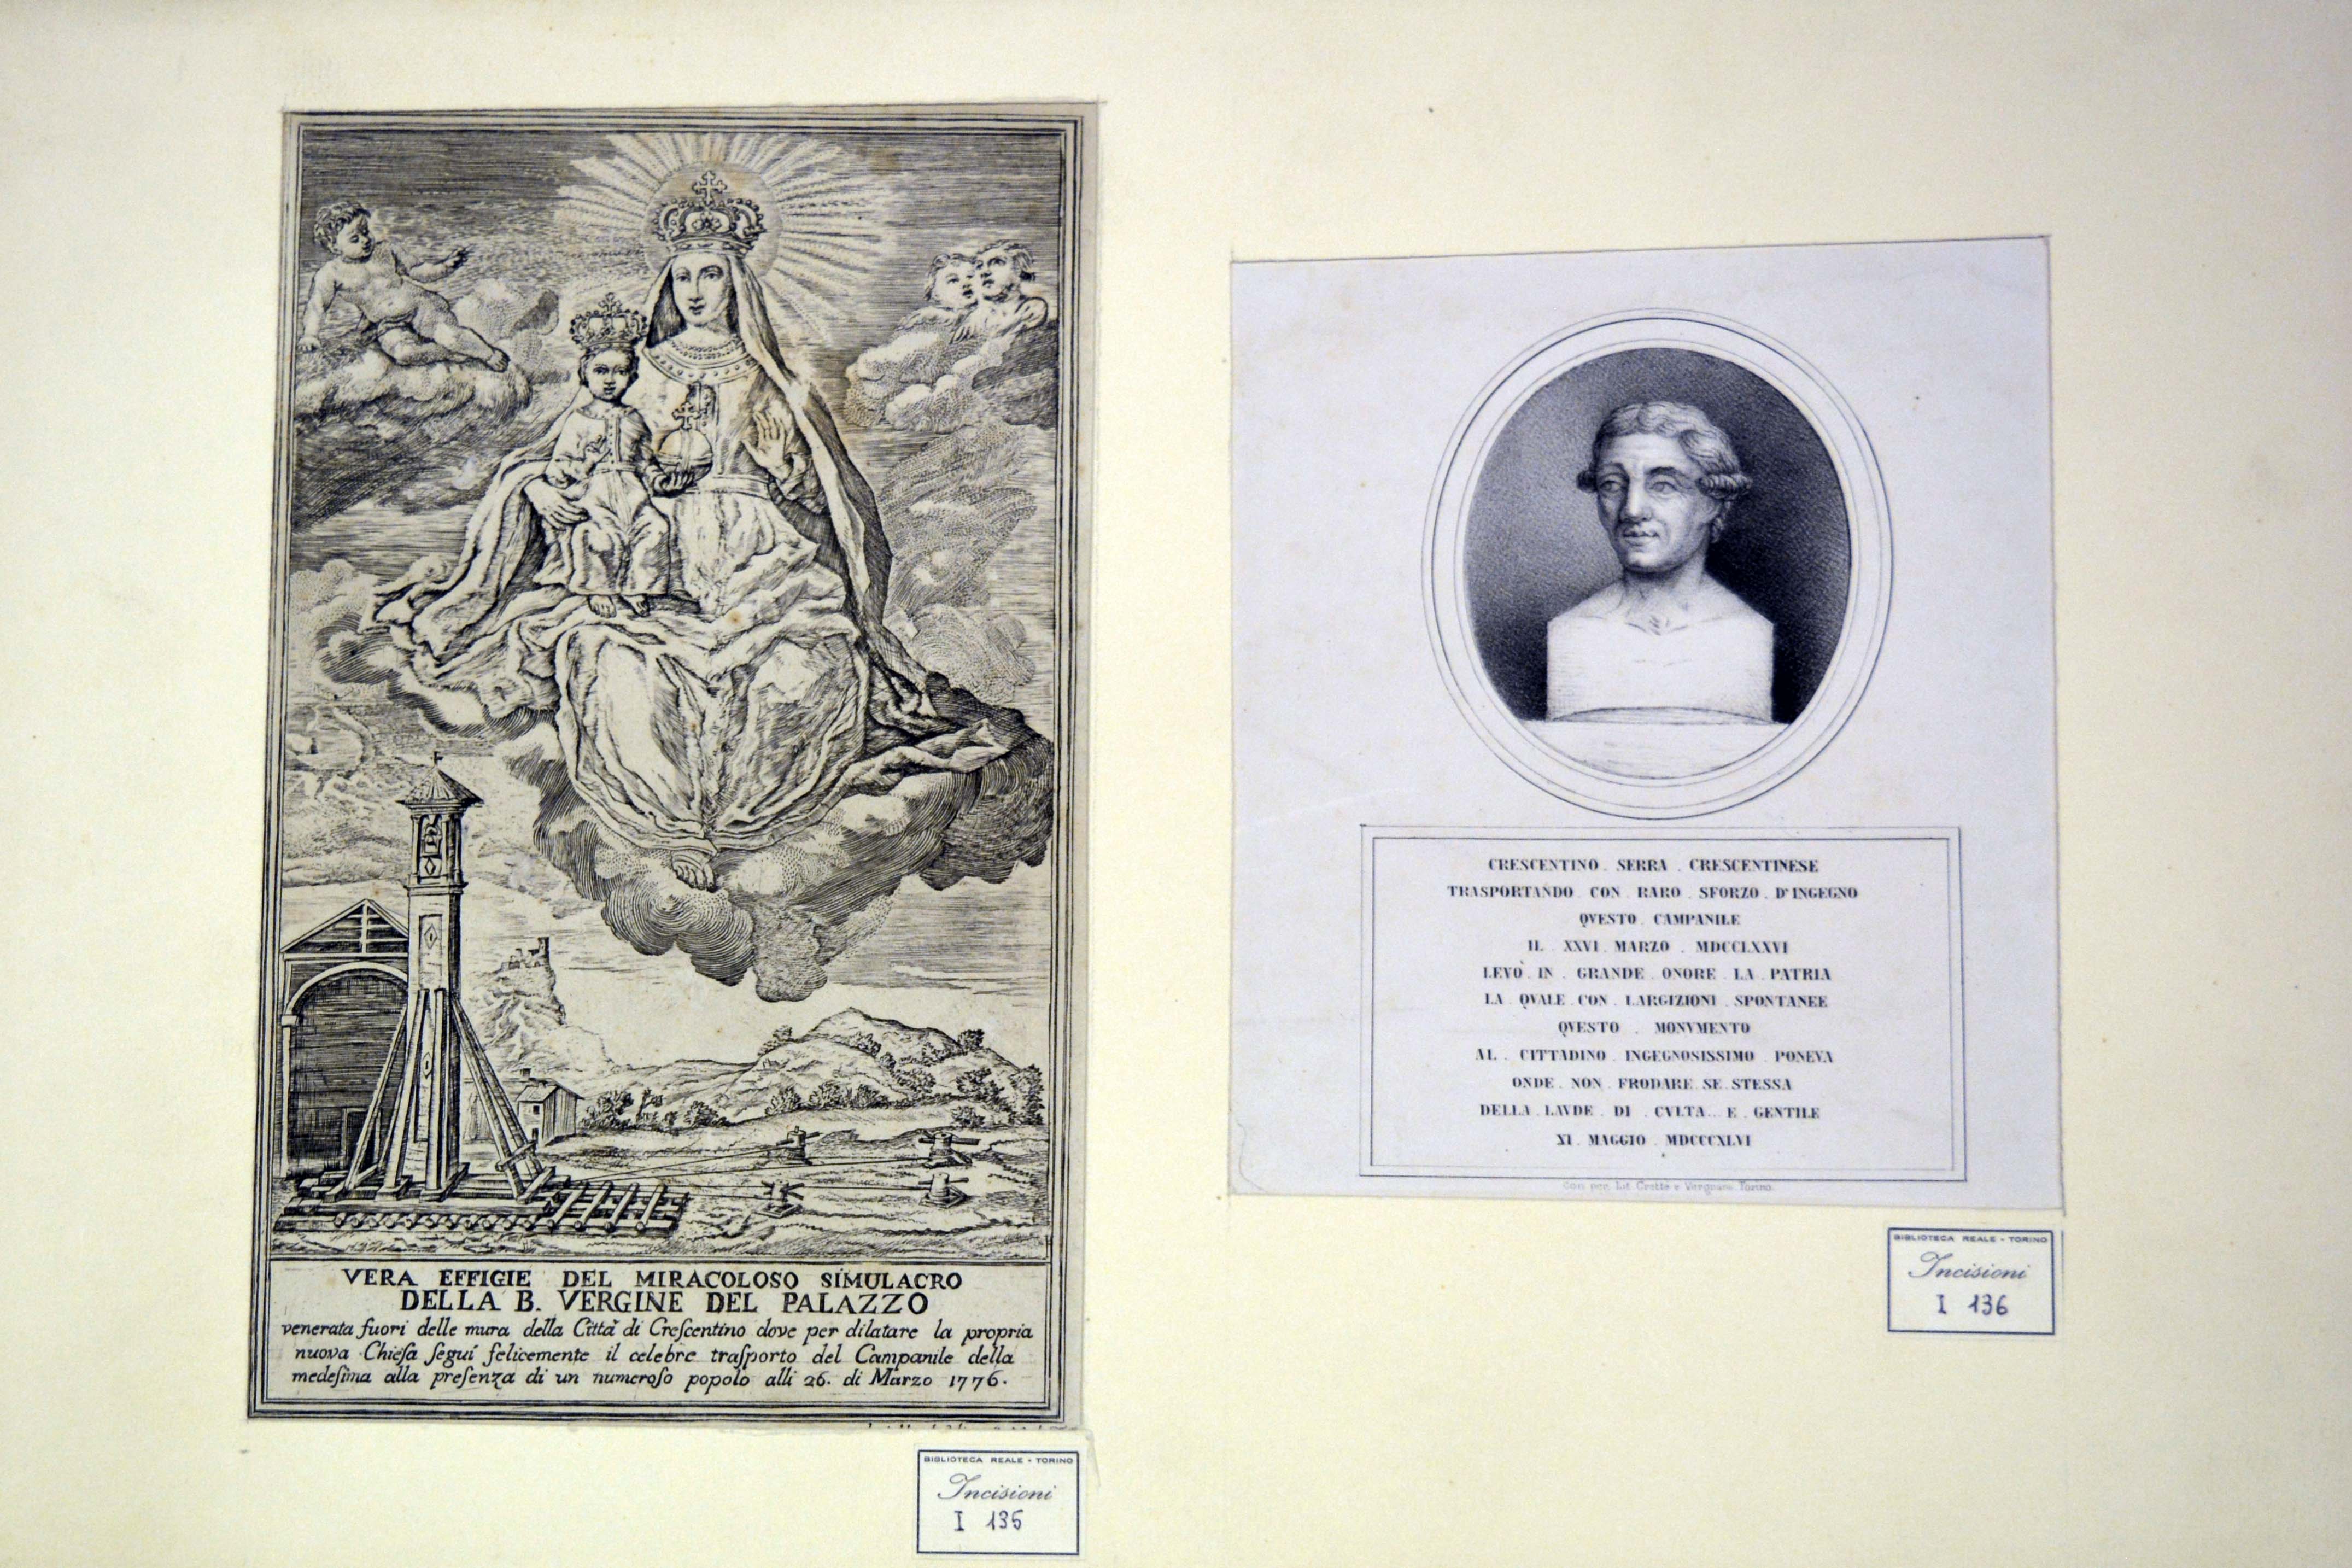 VERA EFFIGIE DEL MIRACOLOSO SIMULACRO
DELLA B. VERGINE DEL PALAZZO
venerata fuori delle mura della Città di Creſcentino dove per dilatare la propria
nuova Chieſa ſeguí felicemente il celebre traſporto del Campanile della
medeſima alla preſenza di un numeroſo popolo alli 26. di Marzo 1776.
BIBLIOTECA REALE - TORINO
Incisioni
I 135
CRESCENTINO . SERRA . CRESCENTINESE
TRASPORTANDO CON RARO SFORZO . D'INGEGNO
QVESTO CAMPANILE
IL XXVI MARZO . MDCCLXXVI
LEVÒ IN . GRANDE . ONORE . LA . PATRIA
LA . QVALE . CON . LARGIZIONI . SPONTANEE
QVESTO . MONVMENTO
AL . CITTADINO INGEGNOSISSIMO PONEVA
ONDE . NON . FRODARE . SE . STESSA
DELLA . LAVDE . DI . CVLTA . . E . GENTILE
XI . MAGGIO . MDCCCXLVI
Con per. Lit. Torino.
BIBLIOTECA REALE - TORINO
Incisioni
I 136